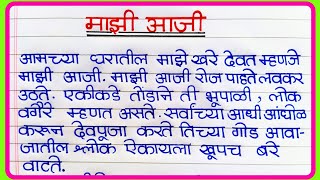 माझी आजी
आमच्या घरातील माझे खरे देवत म्हणजे
माझी आजी. माझी आजी रोज पाहते लवकर
उठते. एकीकडे तोंडाने ती भूपाळी, लोक
वगैरे म्हणत असते. सर्वाच्या आधी आंघोळ
करून देवपूजा करते तिच्या गोड आवा-
जातील श्लोक ऐकायला खूपच बरे
वाटते.